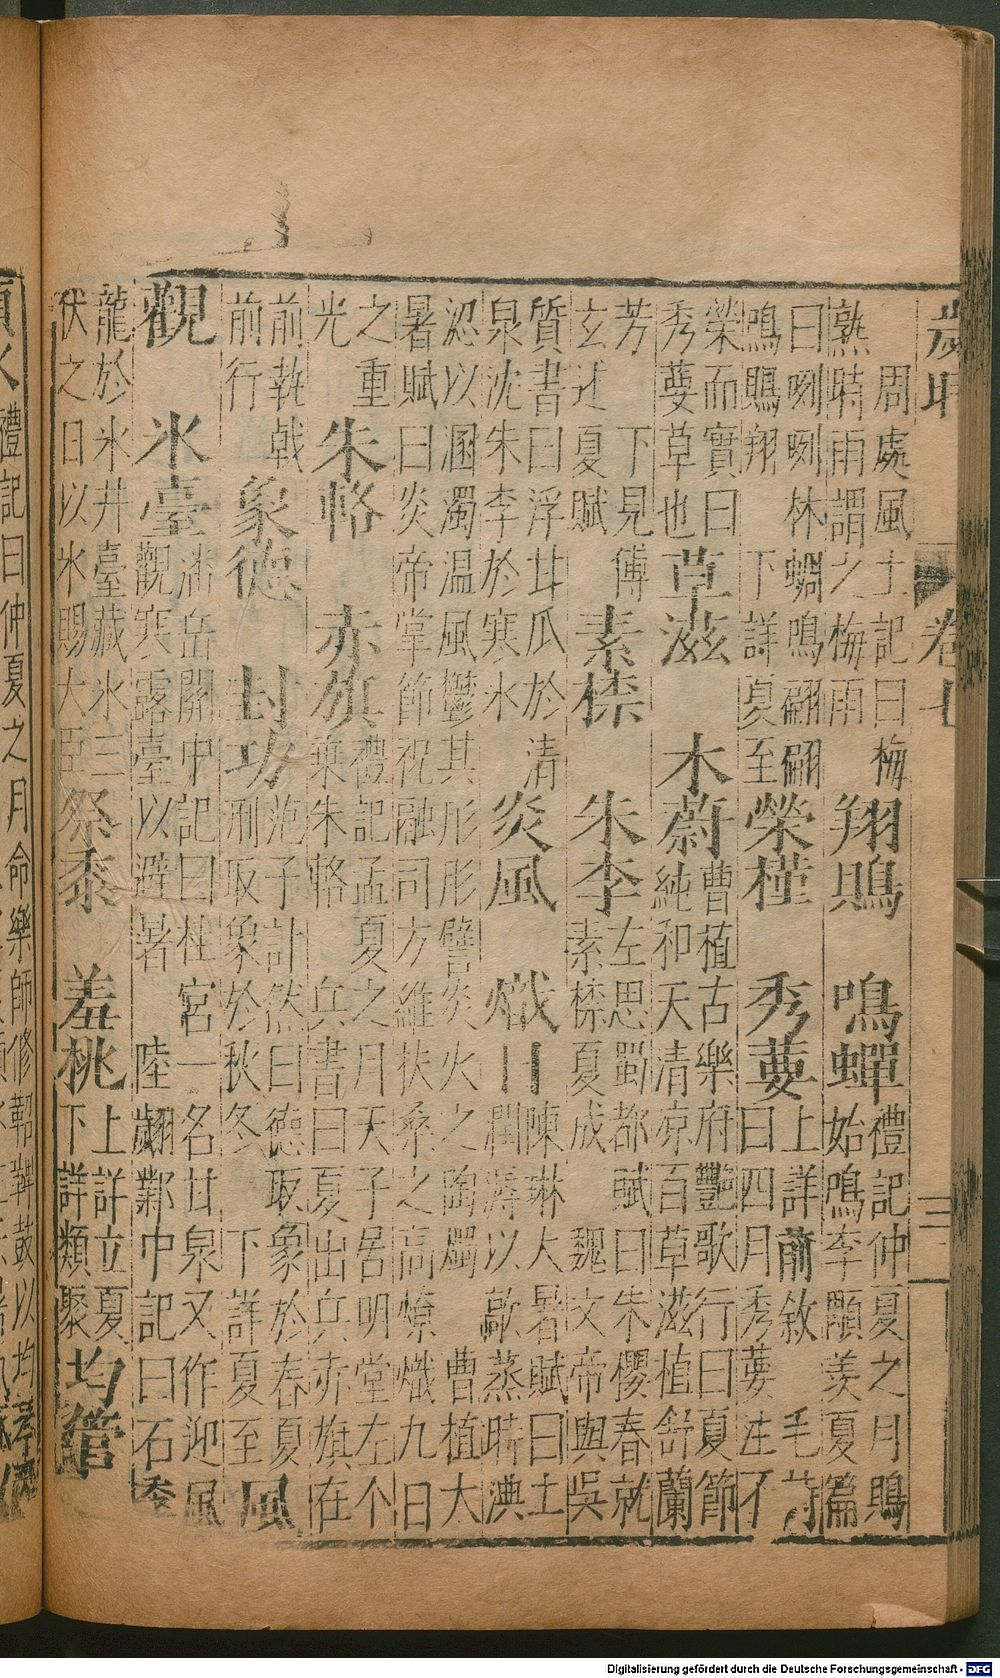 歲時 卷七 三
周處風土記曰梅
熟時雨謂之梅雨
翔鵙 鳴蟬
禮記仲夏之月鵙
始鳴李顒羨夏篇
曰咧咧林蜩鳴翩翩
鳴鵙翔 下詳夏至
榮槿 秀葽
上詳前敘 毛詩
曰四月秀葽注不
榮而實曰
秀葽草也
草滋 木蔚
曹植古樂府艷歌行曰夏節
純和天清凉百草滋植舒蘭
芳 下見傅
玄述夏賦
素㮈 朱李
左思蜀都賦曰朱櫻春就
素㮈夏成 魏文帝與吳
質書曰浮甘瓜於清
泉沈朱李於寒水
炎風 熾日
陳琳大暑賦曰土
潤溽以歊蒸時淟
涊以溷濁温風鬱其彤彤譬炎火之陶燭 曹植大
暑賦曰炎帝掌節祝融司方維扶桑之高燎熾九日
之重
光
朱輅 赤旗
禮記孟夏之月天子居明堂左个
乘朱輅 兵書曰夏出兵赤旗在
前前乾戟
前行
象德 封功
范子計然曰德取象於春夏
刑取象於秋冬 下詳夏至
風
觀 氷臺
潘岳關中記曰桂宮一名甘泉又作迎風
觀寒露臺以避暑 陸翽鄴中記曰石季
龍於氷井臺藏氷三
伏之日以氷賜大臣
祭黍 羞桃
上詳立夏
下詳類聚
均管
禮記曰仲夏之月命樂師修鞀鞞鼓以均琴
Digitalisierung gefördert durch die Deutsche Forschungsgemeinschaft - DFG